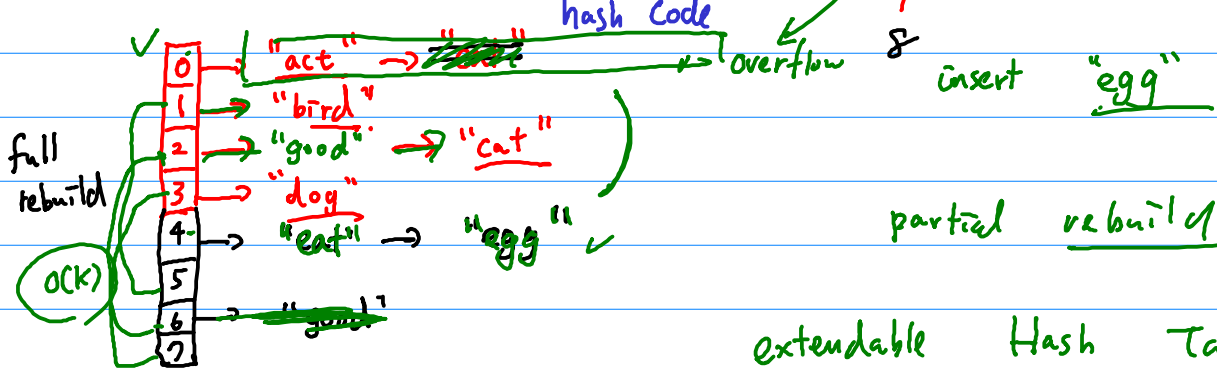 hash Code
0 "act" overflow 8
insert "egg"
1 "bird"
full rebuild
2 "good" "cat"
3 "dog"
4 "eat" "egg"
partial rebuild
O(K)
5
6
7
extendable Hash Ta